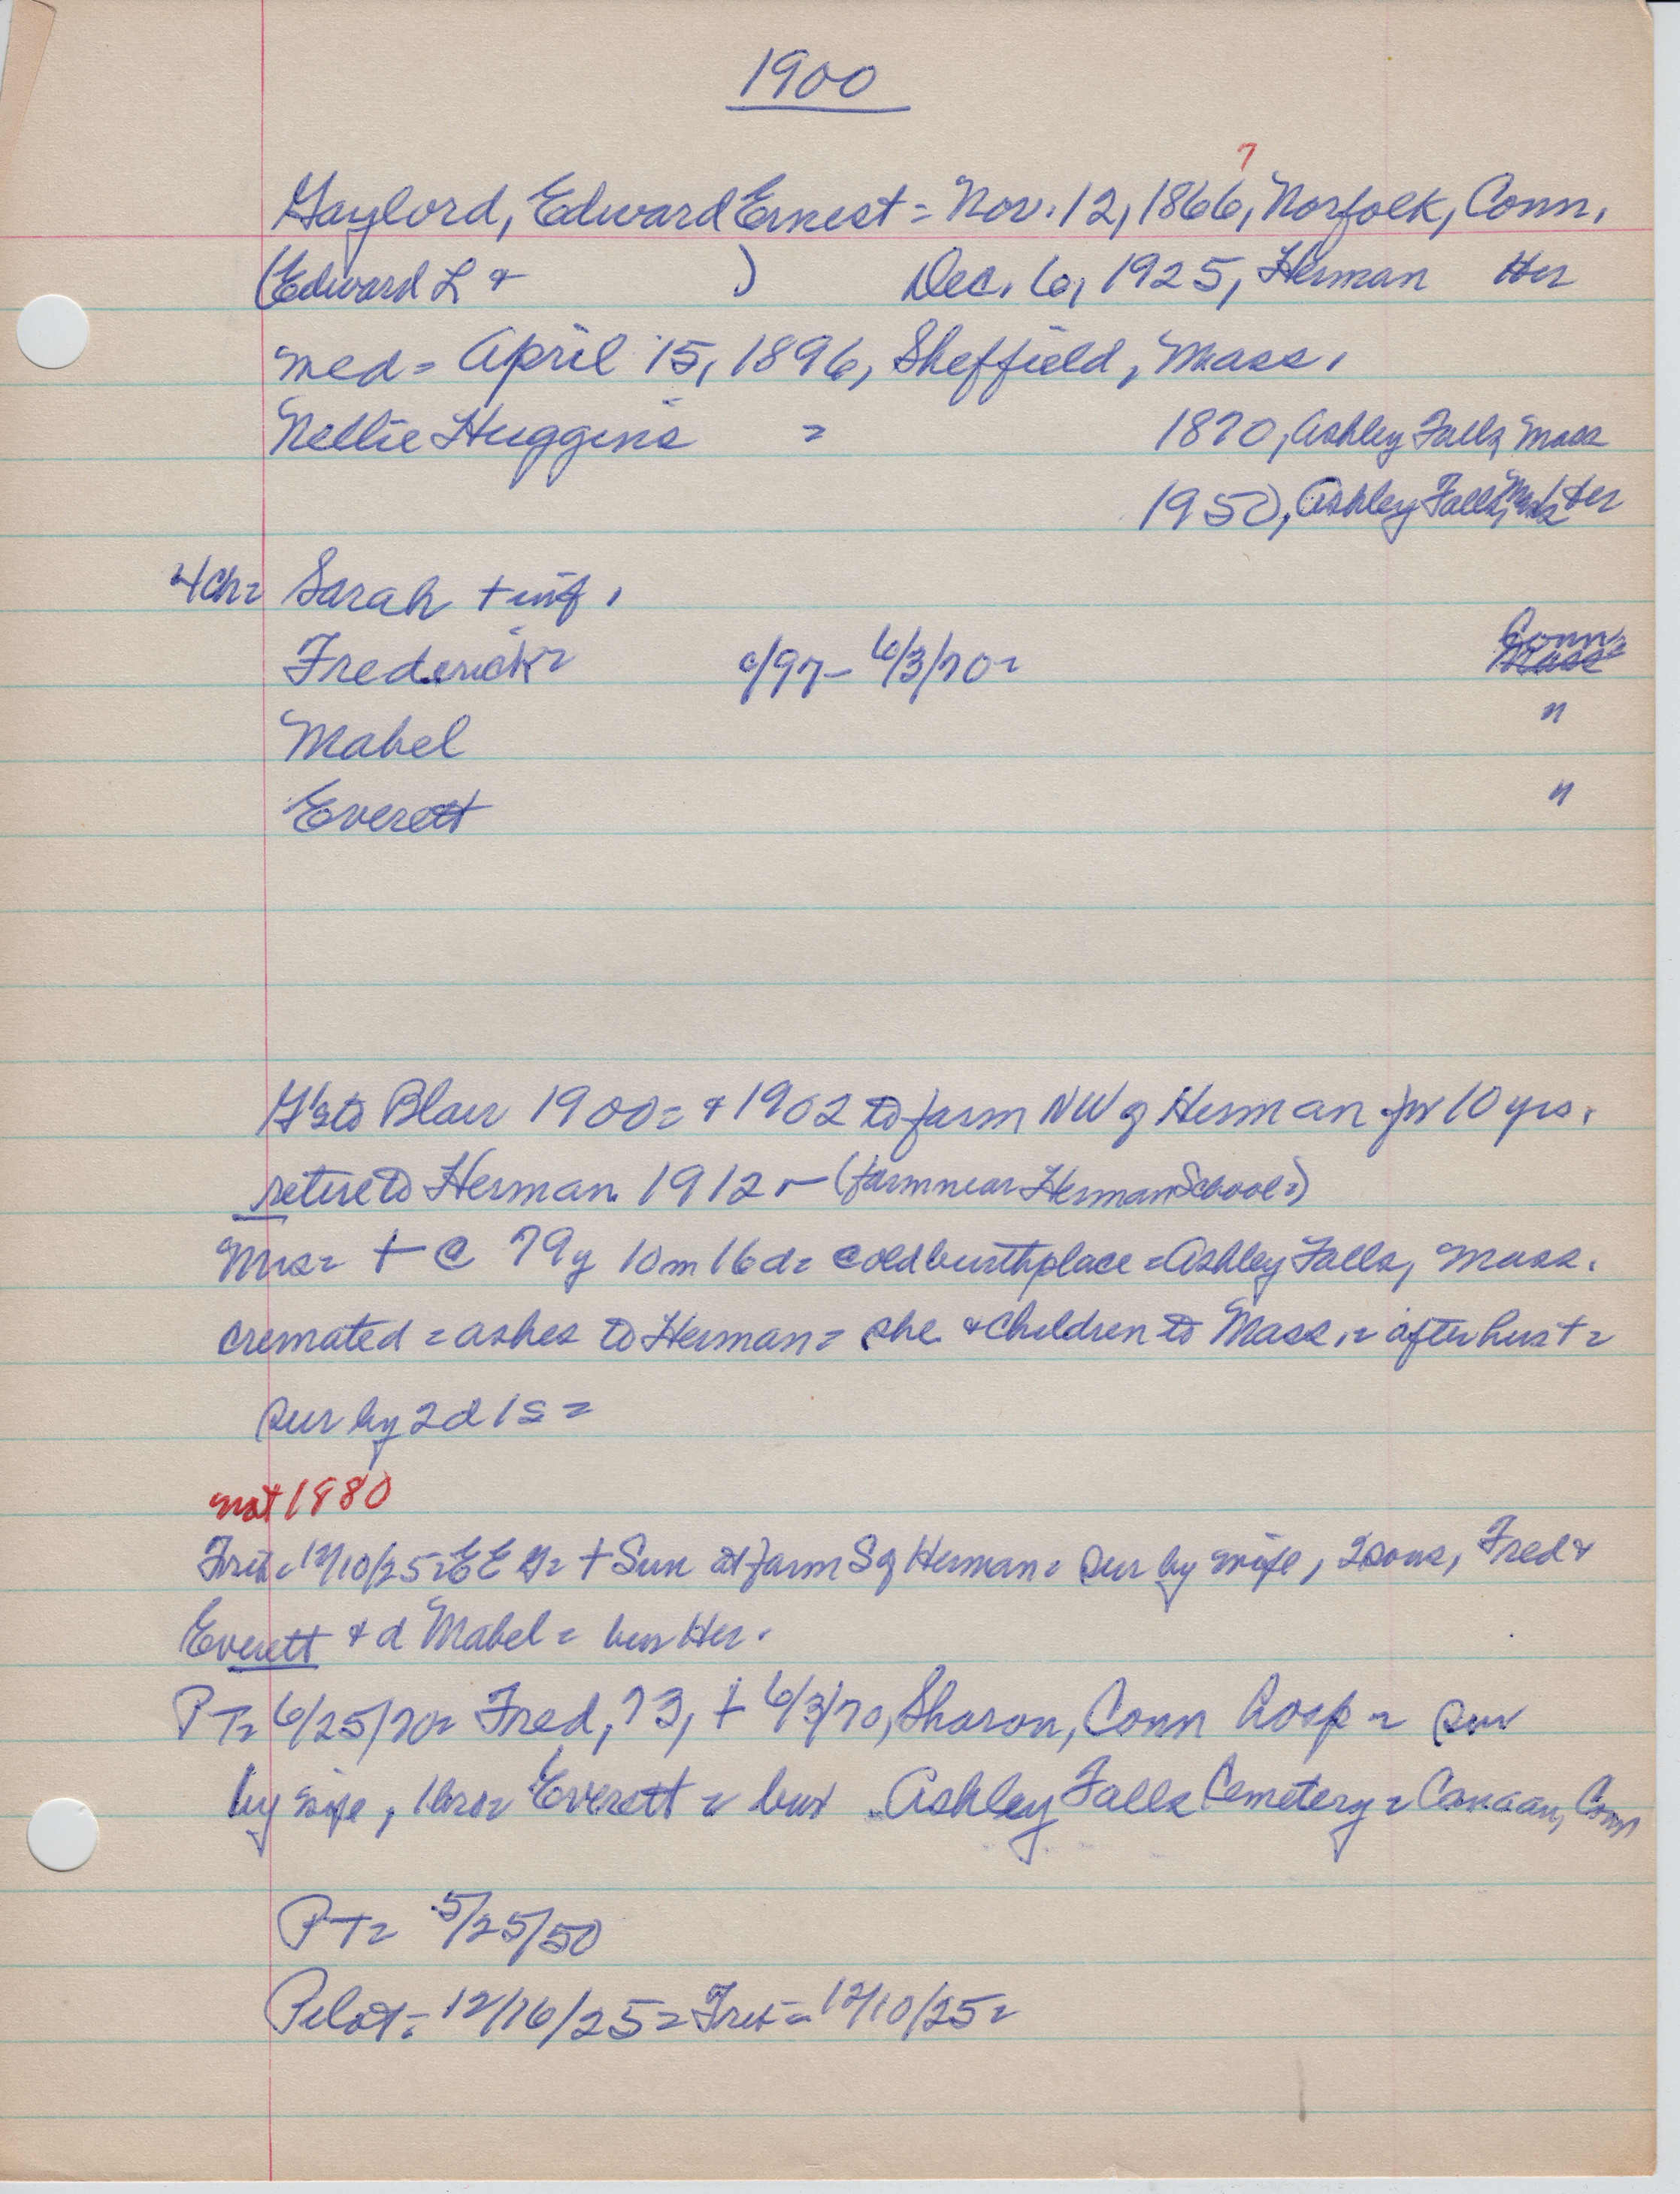 1900
7
Gaylord, Edward Ernest = Nov. 12, 1866, Norfolk, Conn.
(Edward L + ) Dec. 6, 1925, Herman Her
med = April 15, 1896, Sheffield, Mass.
Nellie Huggins = 1870, Ashley Falls, Mass
1950, Ashley Falls, Her
4 ch = Sarah + inf.
Frederick = c/97 - 6/3/70 = Conn =
Mass
Mabel "
Everett "
G's to Blair 1900 = + 1902 to farm NW of Herman for 10 yrs.
retire to Herman 1912 - (farm near Herman School =)
Mrs = + @ 79y 10m 16d = @ old birthplace = Ashley Falls, Mass.
cremated = ashes to Herman = she + children to Mass. = after hus + =
sur by 2d 1s =
not 1980
Trib = 12/10/25 = E E G = + Sun at farm S of Herman = sur by wife, 2 sons, Fred +
Everett + d Mabel = bur Her.
PT = 6/25/70 = Fred, 73, + 6/3/70, Sharon, Conn hosp = sur
by wife, 1 bro = Everett = bur Ashley Falls Cemetery = Canaan, Conn
PT = 5/25/50
Pilot = 12/16/25 = Trib = 12/10/25 =